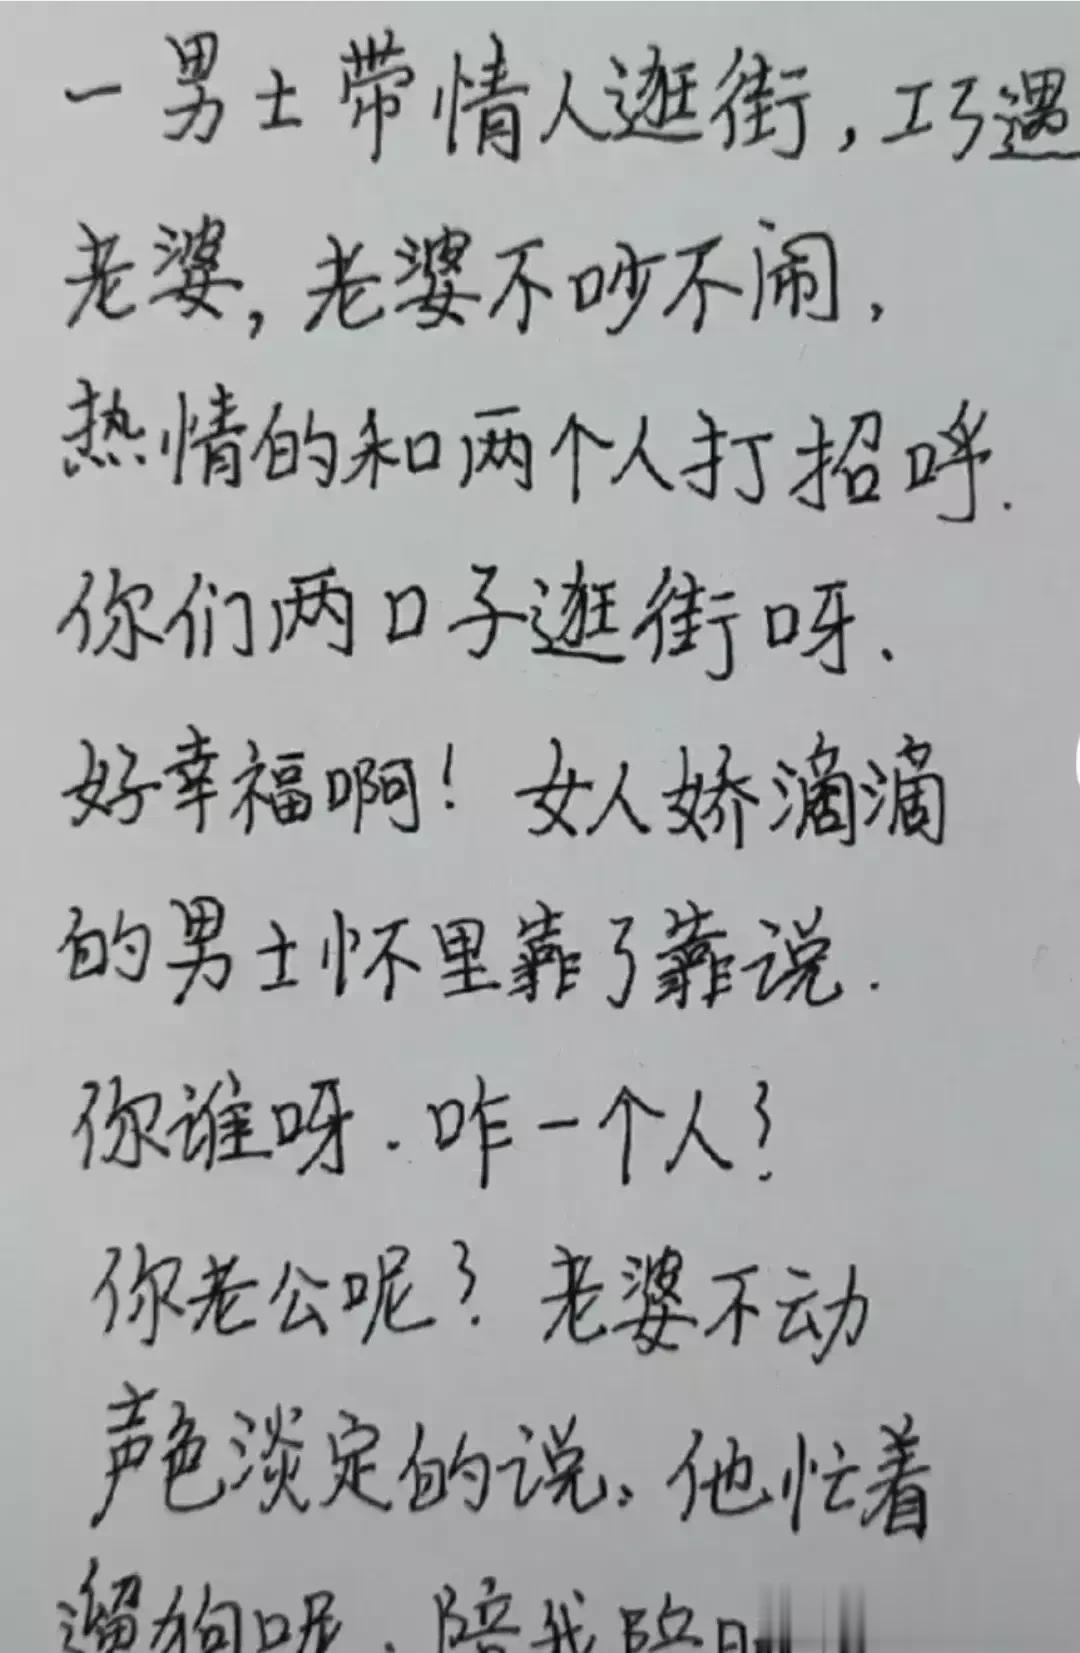 一男士带情人逛街，巧遇
老婆，老婆不吵不闹，
热情的和两个人打招呼.
你们两口子逛街呀、
好幸福啊！女人娇滴滴
的男士怀里靠了靠说.
你谁呀.咋一个人？
你老公呢？老婆不动
声色淡定的说、他忙着
遛狗呢、陪我